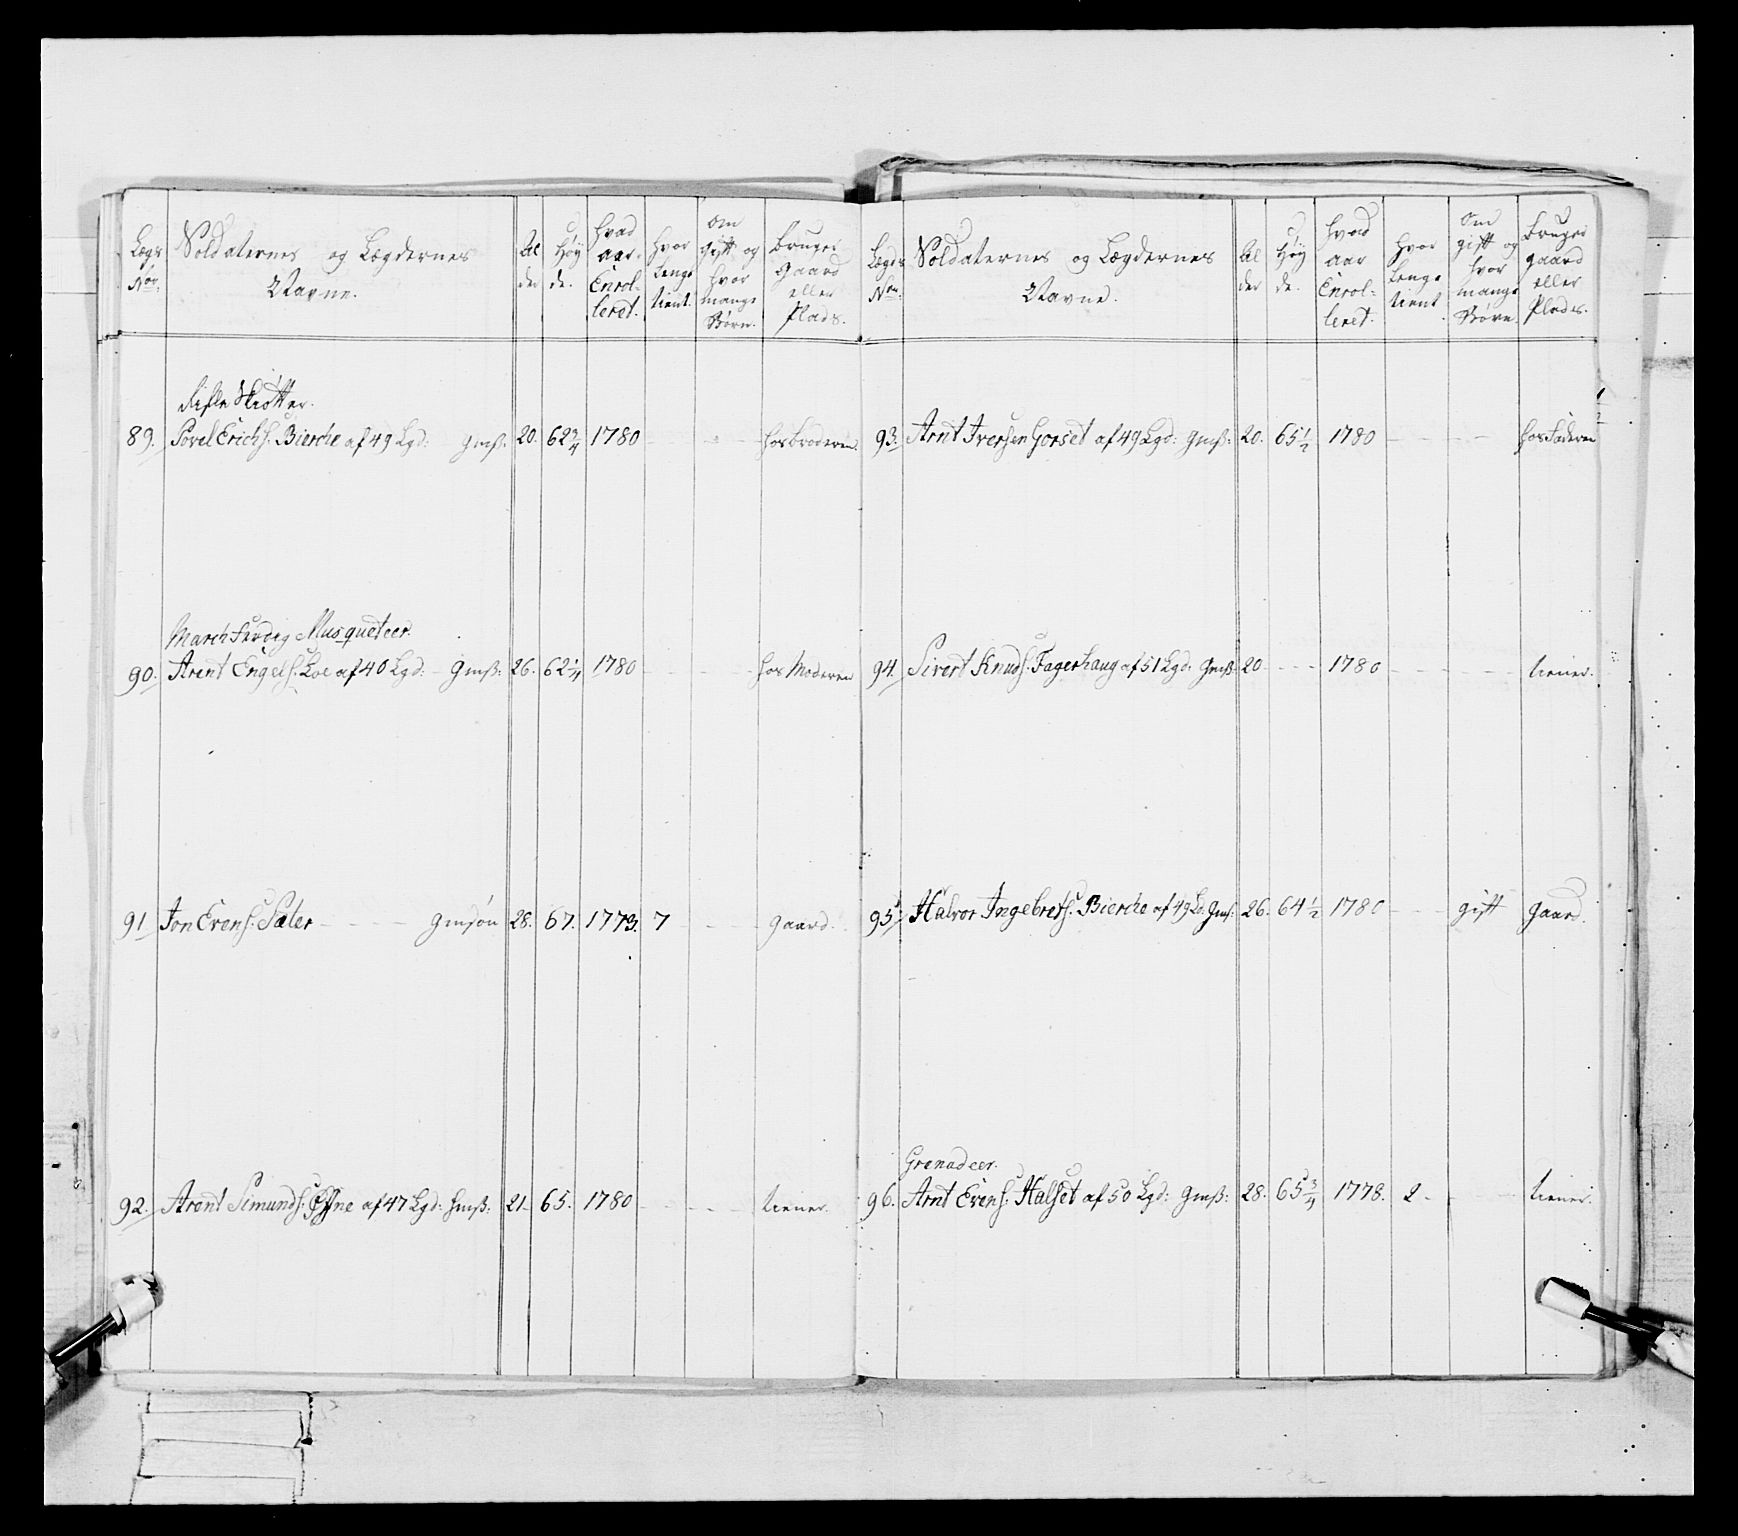 Lægs Nor.
Soldaternes og Lægdernes Navne.
Alder
Høyde.
Hvad aar Enrolleret.
Hvor Lenge tient.
Om gift og hvor mange Børn.
Bruger Gaard eller Plads.
Rifle Skötter.
89. Povel Erichs. Bierche af 49 Lgd: gmß: 20. 62 3/4 1780 - - - hos broderen.
March Færdig Musqueteer.
90. Arent Engels. Loe af 40 Lgd: - Gmß: 26. 62 1/4 1780 - - - - hos Moderen
91 Jon Evens. Sæter - - - - gmsøn 28. 67. 1773. 7 - - - gaard.
92. Arent Simunds. af 47 Lgd: Gmß. 21. 65. 1780 - - - - tiener.
Lægds Nor.
Soldaternes og Lægdernes Navne.
Alder
Høyde.
hvad aar Enrolleret.
Hvor Lenge tient
Om gift og hvor mange Børn.
Bruger gaard eller Plads.
93. Arnt Iversen Gorset af 49 Lgd: gmß: 20. 65 1/2 1780 - - - - hos Faderen
94. Sivert Knuds. Fagerhaug af 51 Lgd. Gmß: 20 - - - 1780 - - - - tiener.
95. Halvor Ingebrets. Bierche af 49 Ld. Gmß. 26. 64 1/2 1780 - - - gift Gaard.
Grenadeer.
96. Arnt Evens. Halset af 50 Lgd: gmß: 28. 65 3/4 1778. 2 - - - tiener.